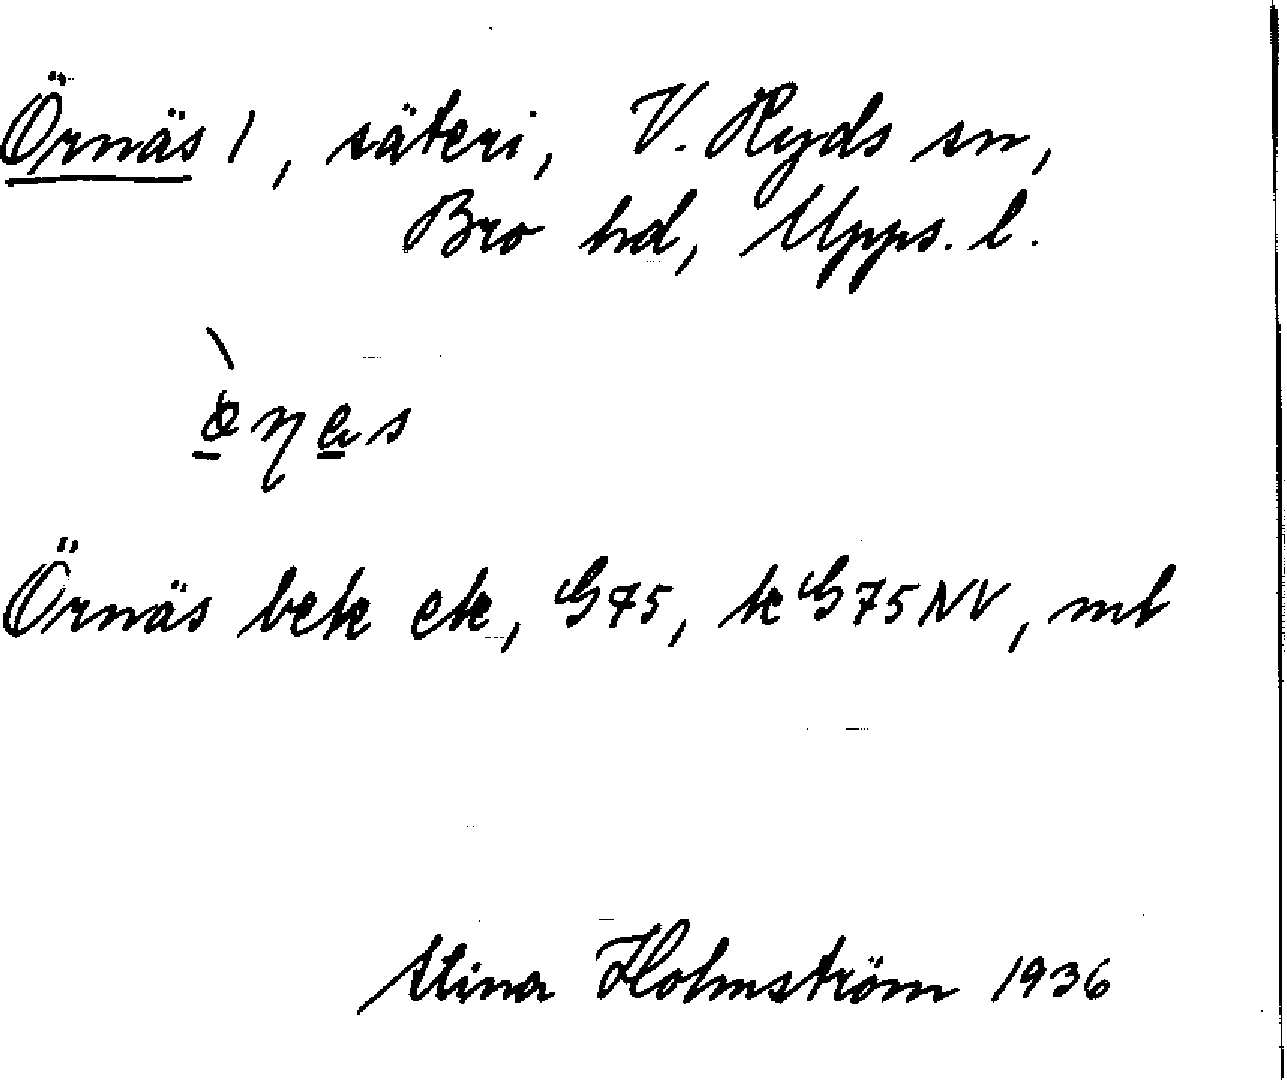 Örnäs 1, säteri, V. Ryds sn,
Bro hd, Upps. l.
Örnäs bek ek, G75, k G75NV, ml
Stina Holmström 1936